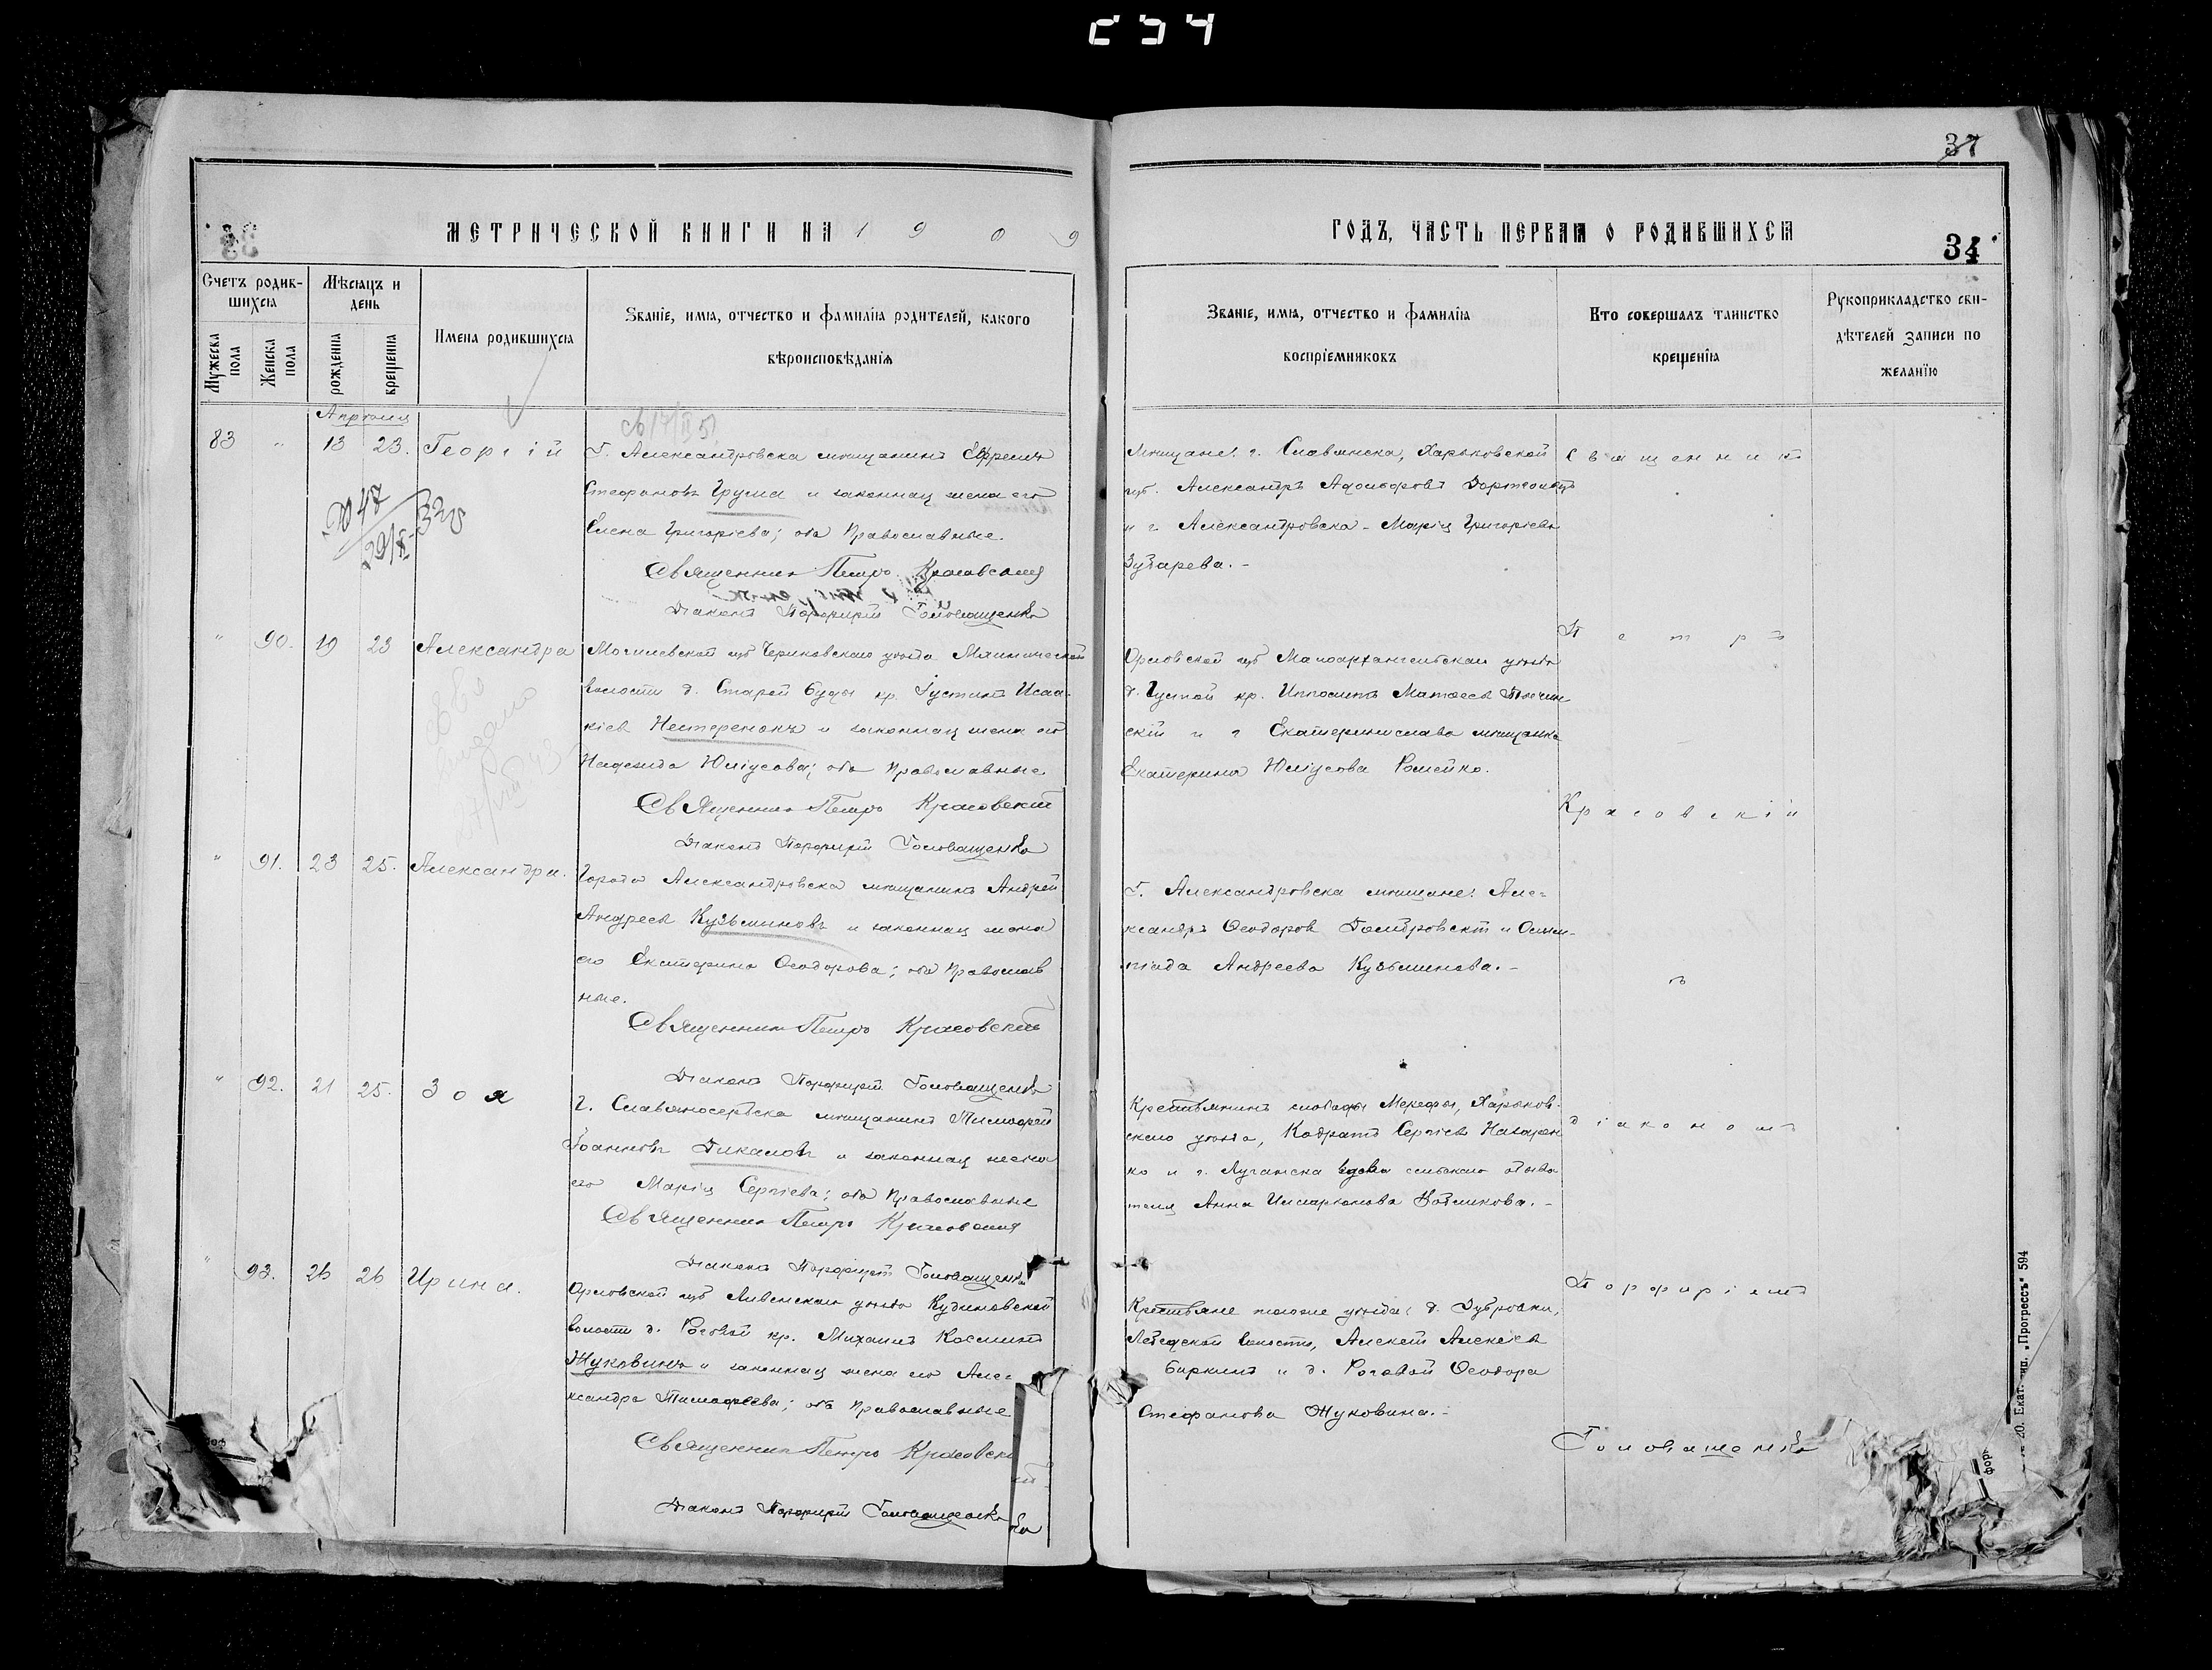 37
МЕТРИЧЕСКОЙ КНИГИ НА 1909
ГОДЪ, ЧАСТЬ ПЕРВАЯ О РОДИВШИХСЯ
34
Счетъ родив-
шихся
Мужеска пола
Женска пола
Мѣсяцъ и
день
рожденія
крещенія
Имена родившихся
Званіе, имя, отчество и фамилія родителей, какого
вѣроисповѣданія
Званіе, имя, отчество и фамилія
воспріемниковъ
Кто совершалъ таинство
крещенія
Рукоприкладство сви-
дѣтелей записи по
желанію
Апрѣля
83 " 13 23. Георгій
Г. Александровска мѣщанинъ Ефремъ
Стефановъ Грума и законная жена его
Елена Григоріева; оба православные.
Священникъ Петръ Красовскій
Діаконъ Порфирій Головащенко
Мѣщане: г. Славянска, Харьковской
губ. Александръ
и г. Александровска - Марія Григоріева
Зубарева. -
" 90. 19 23 Александра
Могилевской губ. Чериковскаго уѣзда
волости д. Старой Буды кр. Іустинъ Исаа-
кіевъ Нестеренокъ и законная жена его
Надежда Юліусова; оба православные.
Священникъ Петръ Красовскій
Діаконъ Порфирій Головащенко
Орловской губ. Малоархангельскаго уѣзда
д. кр. Ипполитъ Матѳеевъ
скій и г. Екатеринослава мѣщанка
Екатерина Юліусова Ромейко.
" 91. 23 25. Александра.
Города Александровска мѣщанинъ Андрей
Андреевъ Кузьминовъ и законная жена
его Екатерина Ѳеодорова; оба православ
ные.
Священникъ Петръ Красовскій
Діаконъ Порфирій Головащенко
Г. Александровска мѣщане: Але-
ксандръ Ѳеодоровъ Домбровскій и Олим-
піада Андреева Кузьминова. -
" 92. 21 25. Зоя
г. Славяносербска мѣщанинъ Тимоѳей
Іоанновъ Дикаловъ и законная жена
его Марія Сергіева; оба православные
Священникъ Петръ Красовскій
Діаконъ Порфирій Головащенко
Крестьянинъ слободы Мерефы, Харьков-
скаго уѣзда, Кодратъ Сергіевъ Назарен
ко и г. Луганска вдова сельскаго обыва
теля Анна Илларіонова
" 93. 26 26 Ирина.
Орловской губ. Ливенскаго уѣзда Кудиновской
волости д. Роговой кр. Михаилъ Косминъ
Жуковинъ и законная жена его Але-
ксандра Тимоѳеева; оба православные
Священникъ Петръ Красовскій
Діаконъ Порфирій Головащенко
Крестьяне того же уѣзда: д. Дубровки,
волости, Алексѣй Алексѣевъ
Биркинъ и д. Роговой Ѳеодора
Стефанова Жуковина. -
Священникъ
Петръ
Красовскій
съ
діакономъ
Порфиріемъ
Головащенко
20. Екат. тип. „Прогрессъ" 594